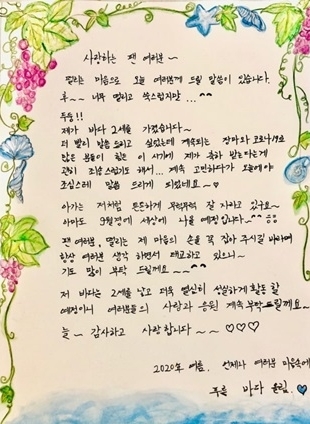 사랑하는 팬 여러분~
떨리는 마음으로 오늘 여러분께 드릴 말씀이 있습니다.
후~~ 너무 떨리고 쑥스럽지만 ...^^
두둥!!
제가 바다 2세를 가졌습니다~
더 빨리 말씀 드리고 싶었는데 계속되는 장마와 코로나19로
많은 분들이 힘든 이 시기에 제가 축하 받는다는게
괜히 조심스럽기도 해서... 계속 고민하다가 오늘에야
조심스레 말씀 드리게 되었네요~♡
아가는 저처럼 튼튼하게 무럭무럭 잘 자라고 있구요~
아마도 9월경에 세상에 나올 예정입니다~^^
팬 여러분, 떨리는 제 마음의 손을 꼭 잡아 주시길 바라며
항상 여러분 생각 하면서 태교하고 있으니~
기도 많이 부탁 드릴게요 ~~^^
저 바다는 2세를 낳고 더욱 열심히 성실하게 활동할
예정이니 여러분들의 사랑과 응원 계속 부탁드릴께요~
늘~ 감사하고 사랑합니다~~♡♡♡
2020년 여름. 언제나 여러분 마음속에
푸른 바다 올림.♡